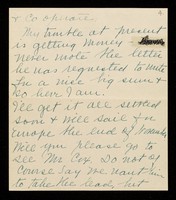 4
& Co
My trouble at present
is getting money
never mote the letter
he was requested to write
for a nice big sum &
so here I am.
I'll get it all settled
soon & will sail for
Europe the end of
Will you please go to
see Mr Cox. Do not of
course say we want him
to take the lead, but